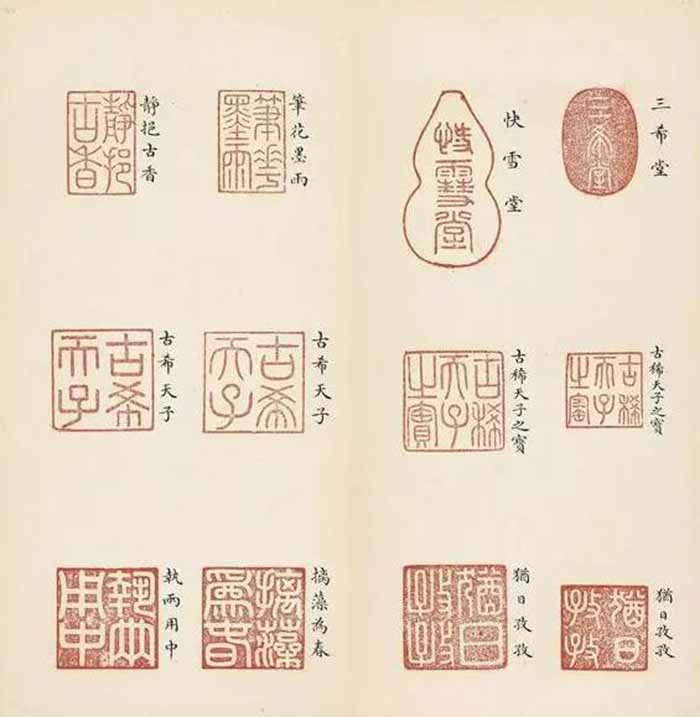 三希堂
快雪堂
筆花墨雨
靜挹古香
古稀天子之寶
古稀天子之寶
古希天子
古希天子
猶日孜孜
猶日孜孜
摛藻為春
執兩用中